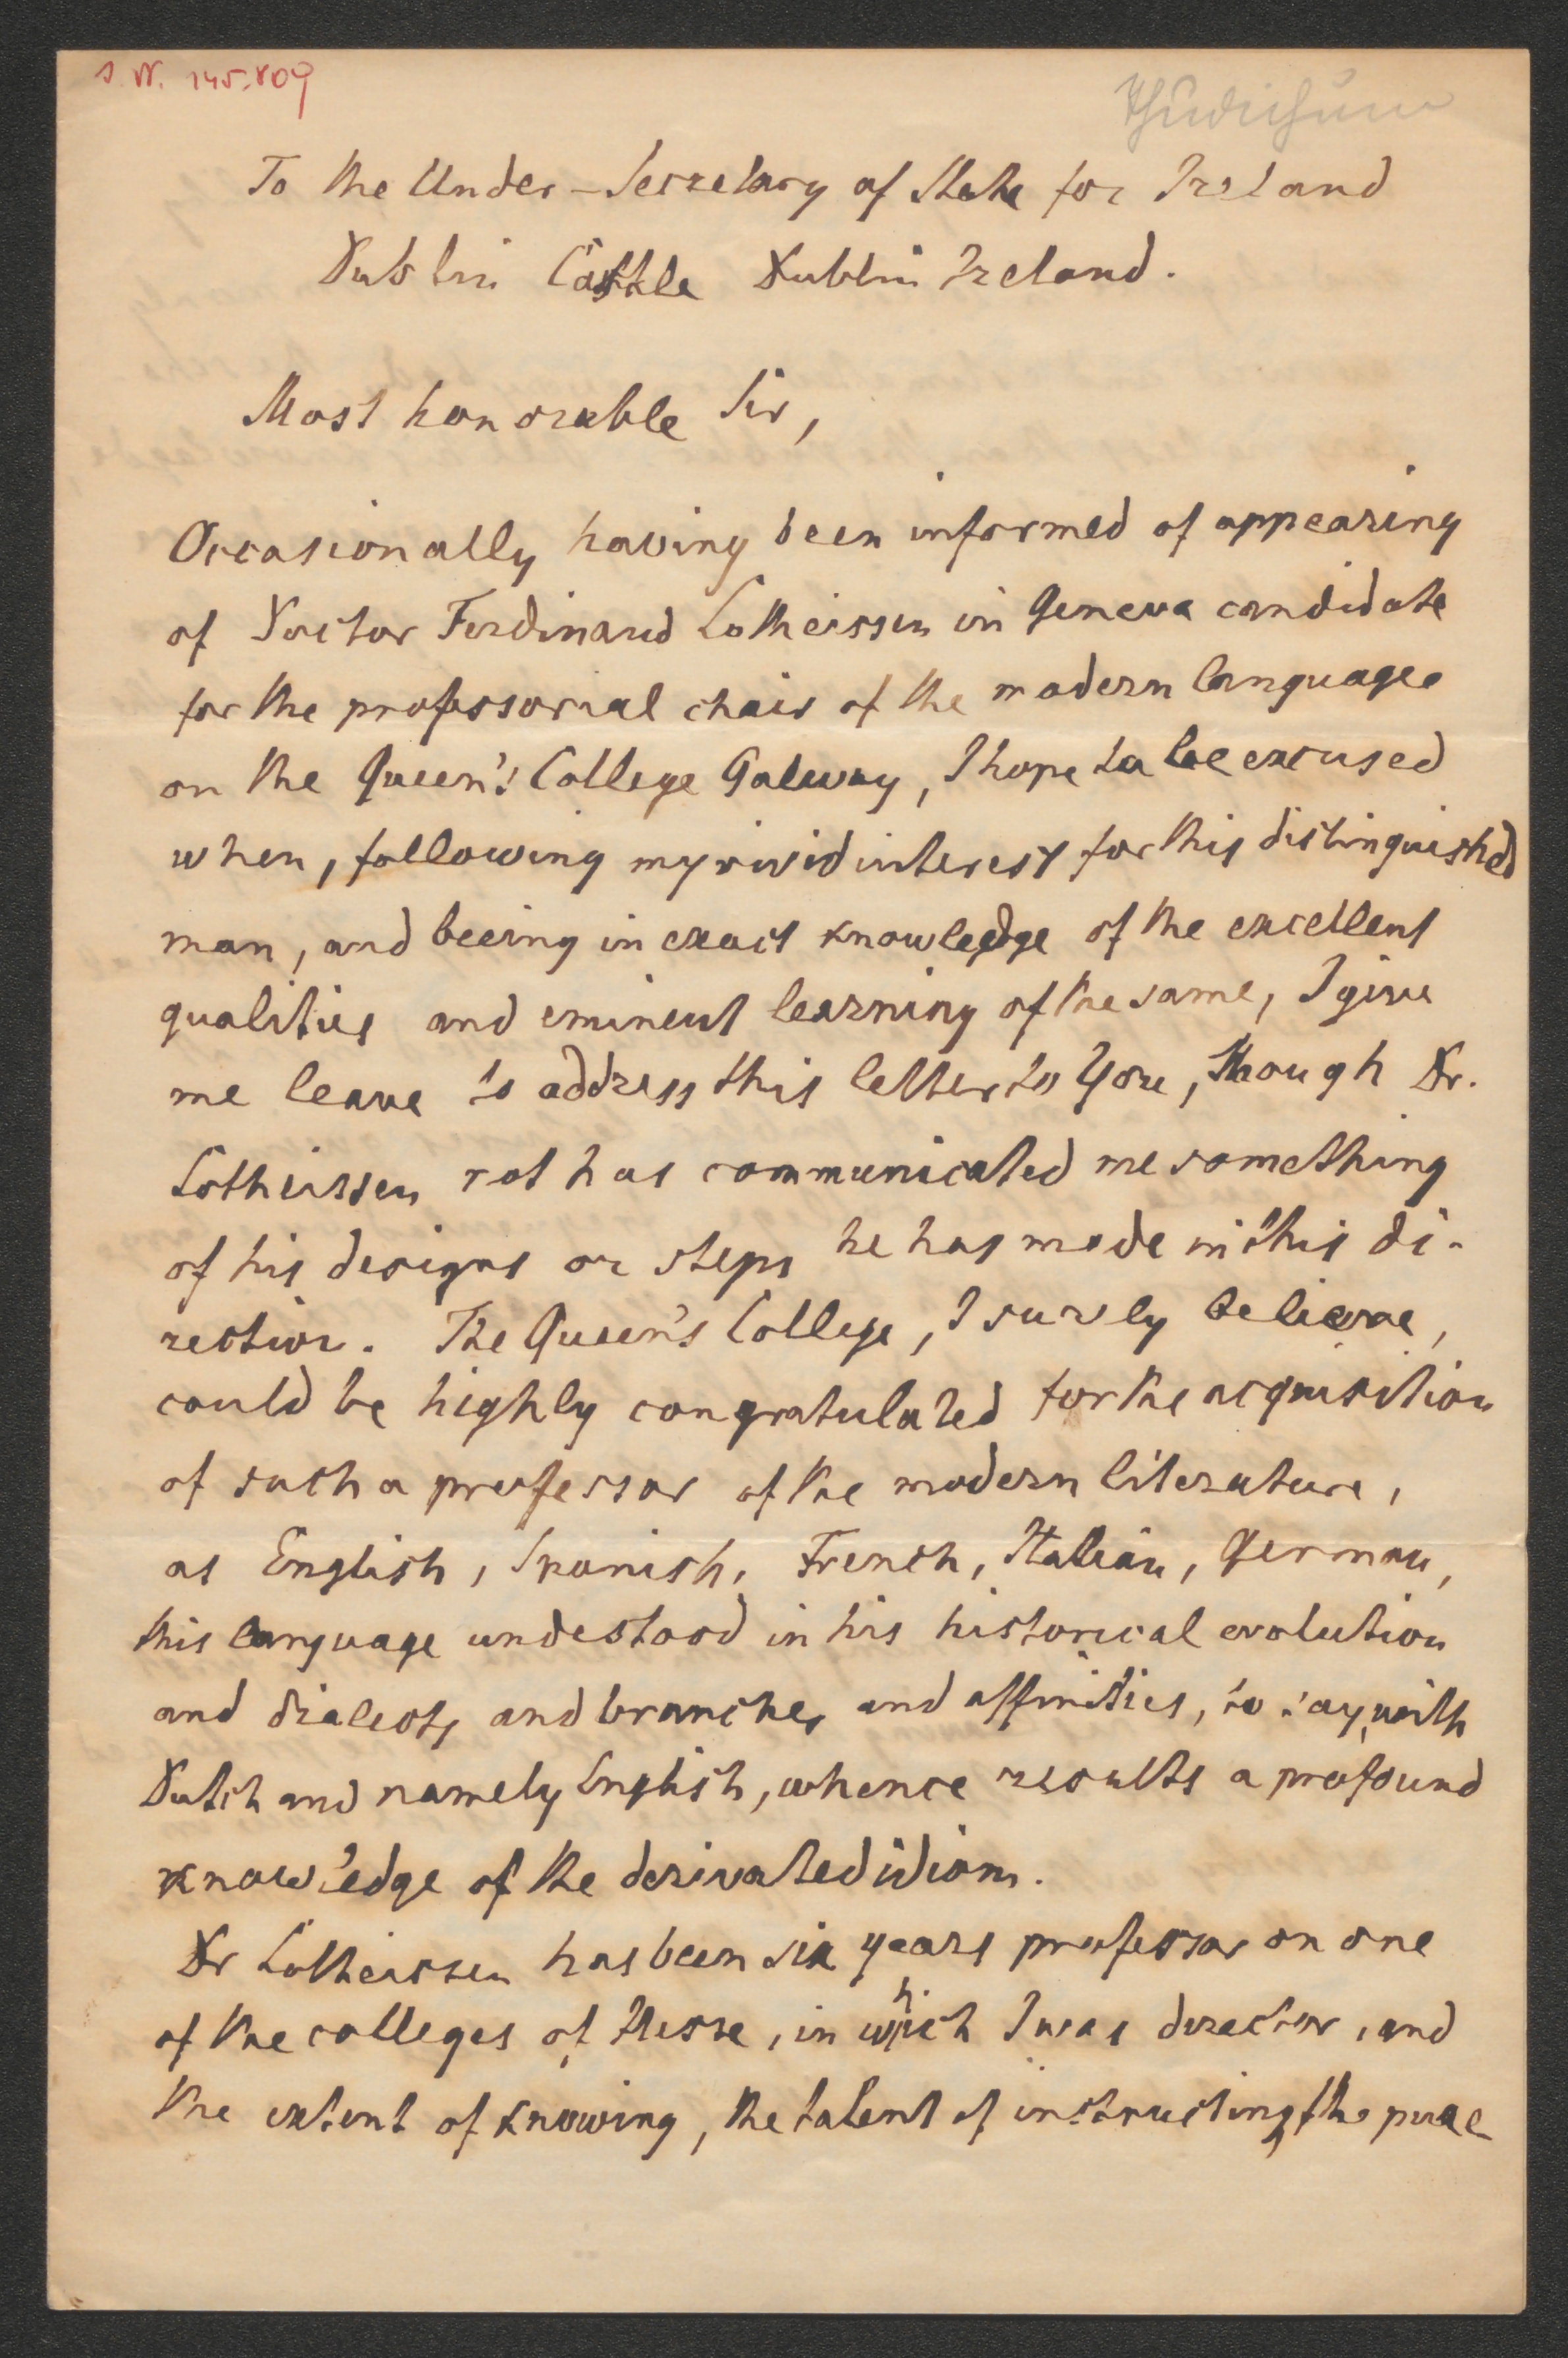 J. N. 145.809
Thudichum
To the Under-Secretary of State for Ireland
Dublin Castle Dublin Ireland.
Most honorable Sir,
Occasionally having been informed of appearing
of Doctor Ferdinand Lotheissen in Geneva candidate
for the professorial chair of the modern languages
on the Queen's College Galway, I hope to be excused
when, following my vivid interest for this distinguished
man, and beeing in exact knowledge of the excellent
qualities and eminent learning of the same, I give
me leave to address this letter to You, though Dr.
Lotheissen not has communicated me something
of his designs or steps he has made in this di-
rection. The Queen's College, I surely believe,
could be highly congratulated for the acquisition
of such a professor of the modern literature,
as English, Spanish, French, Italian, German,
this language undestood in his historical evolution
and dialects and branches and affinities, to say with
Dutch and namely English, whence results a profound
knowledge of the derivated idiom.
Dr Lotheissen has been six years professor on one
of the colleges of Hesse, in which I was director, and
the extent of knowing, the talent of instructing, the prae-